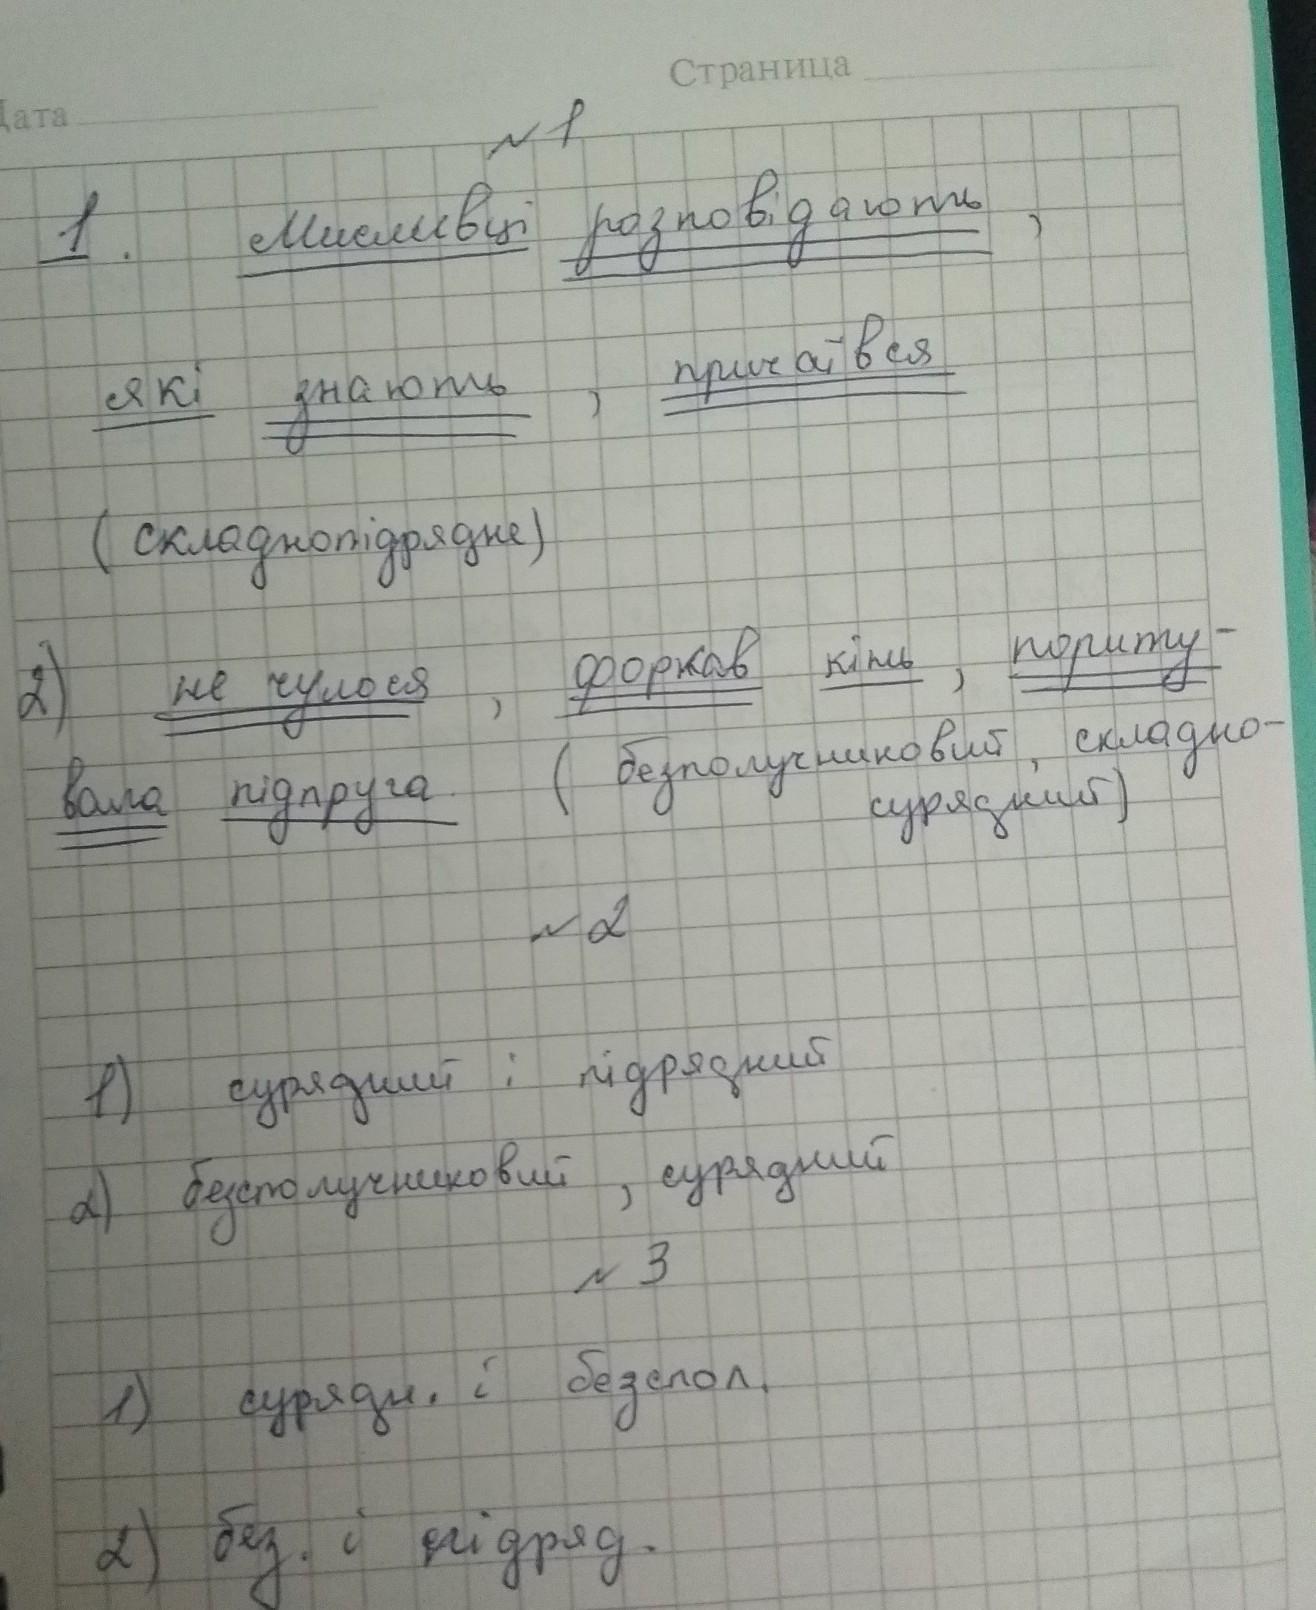 Страница
Дата
№1
1. Мисливці розповідають,
які знають, причаївся
(складнопідрядне)
2) не чулося, форкав кінь, пориту-
вала підпруга (безполучниковий, складно-
сурядний)
№2
1) сурядний і підрядний
2) безсполучниковий, сурядний
№3
1) сурядн. і безспол.
2) без. і підряд.